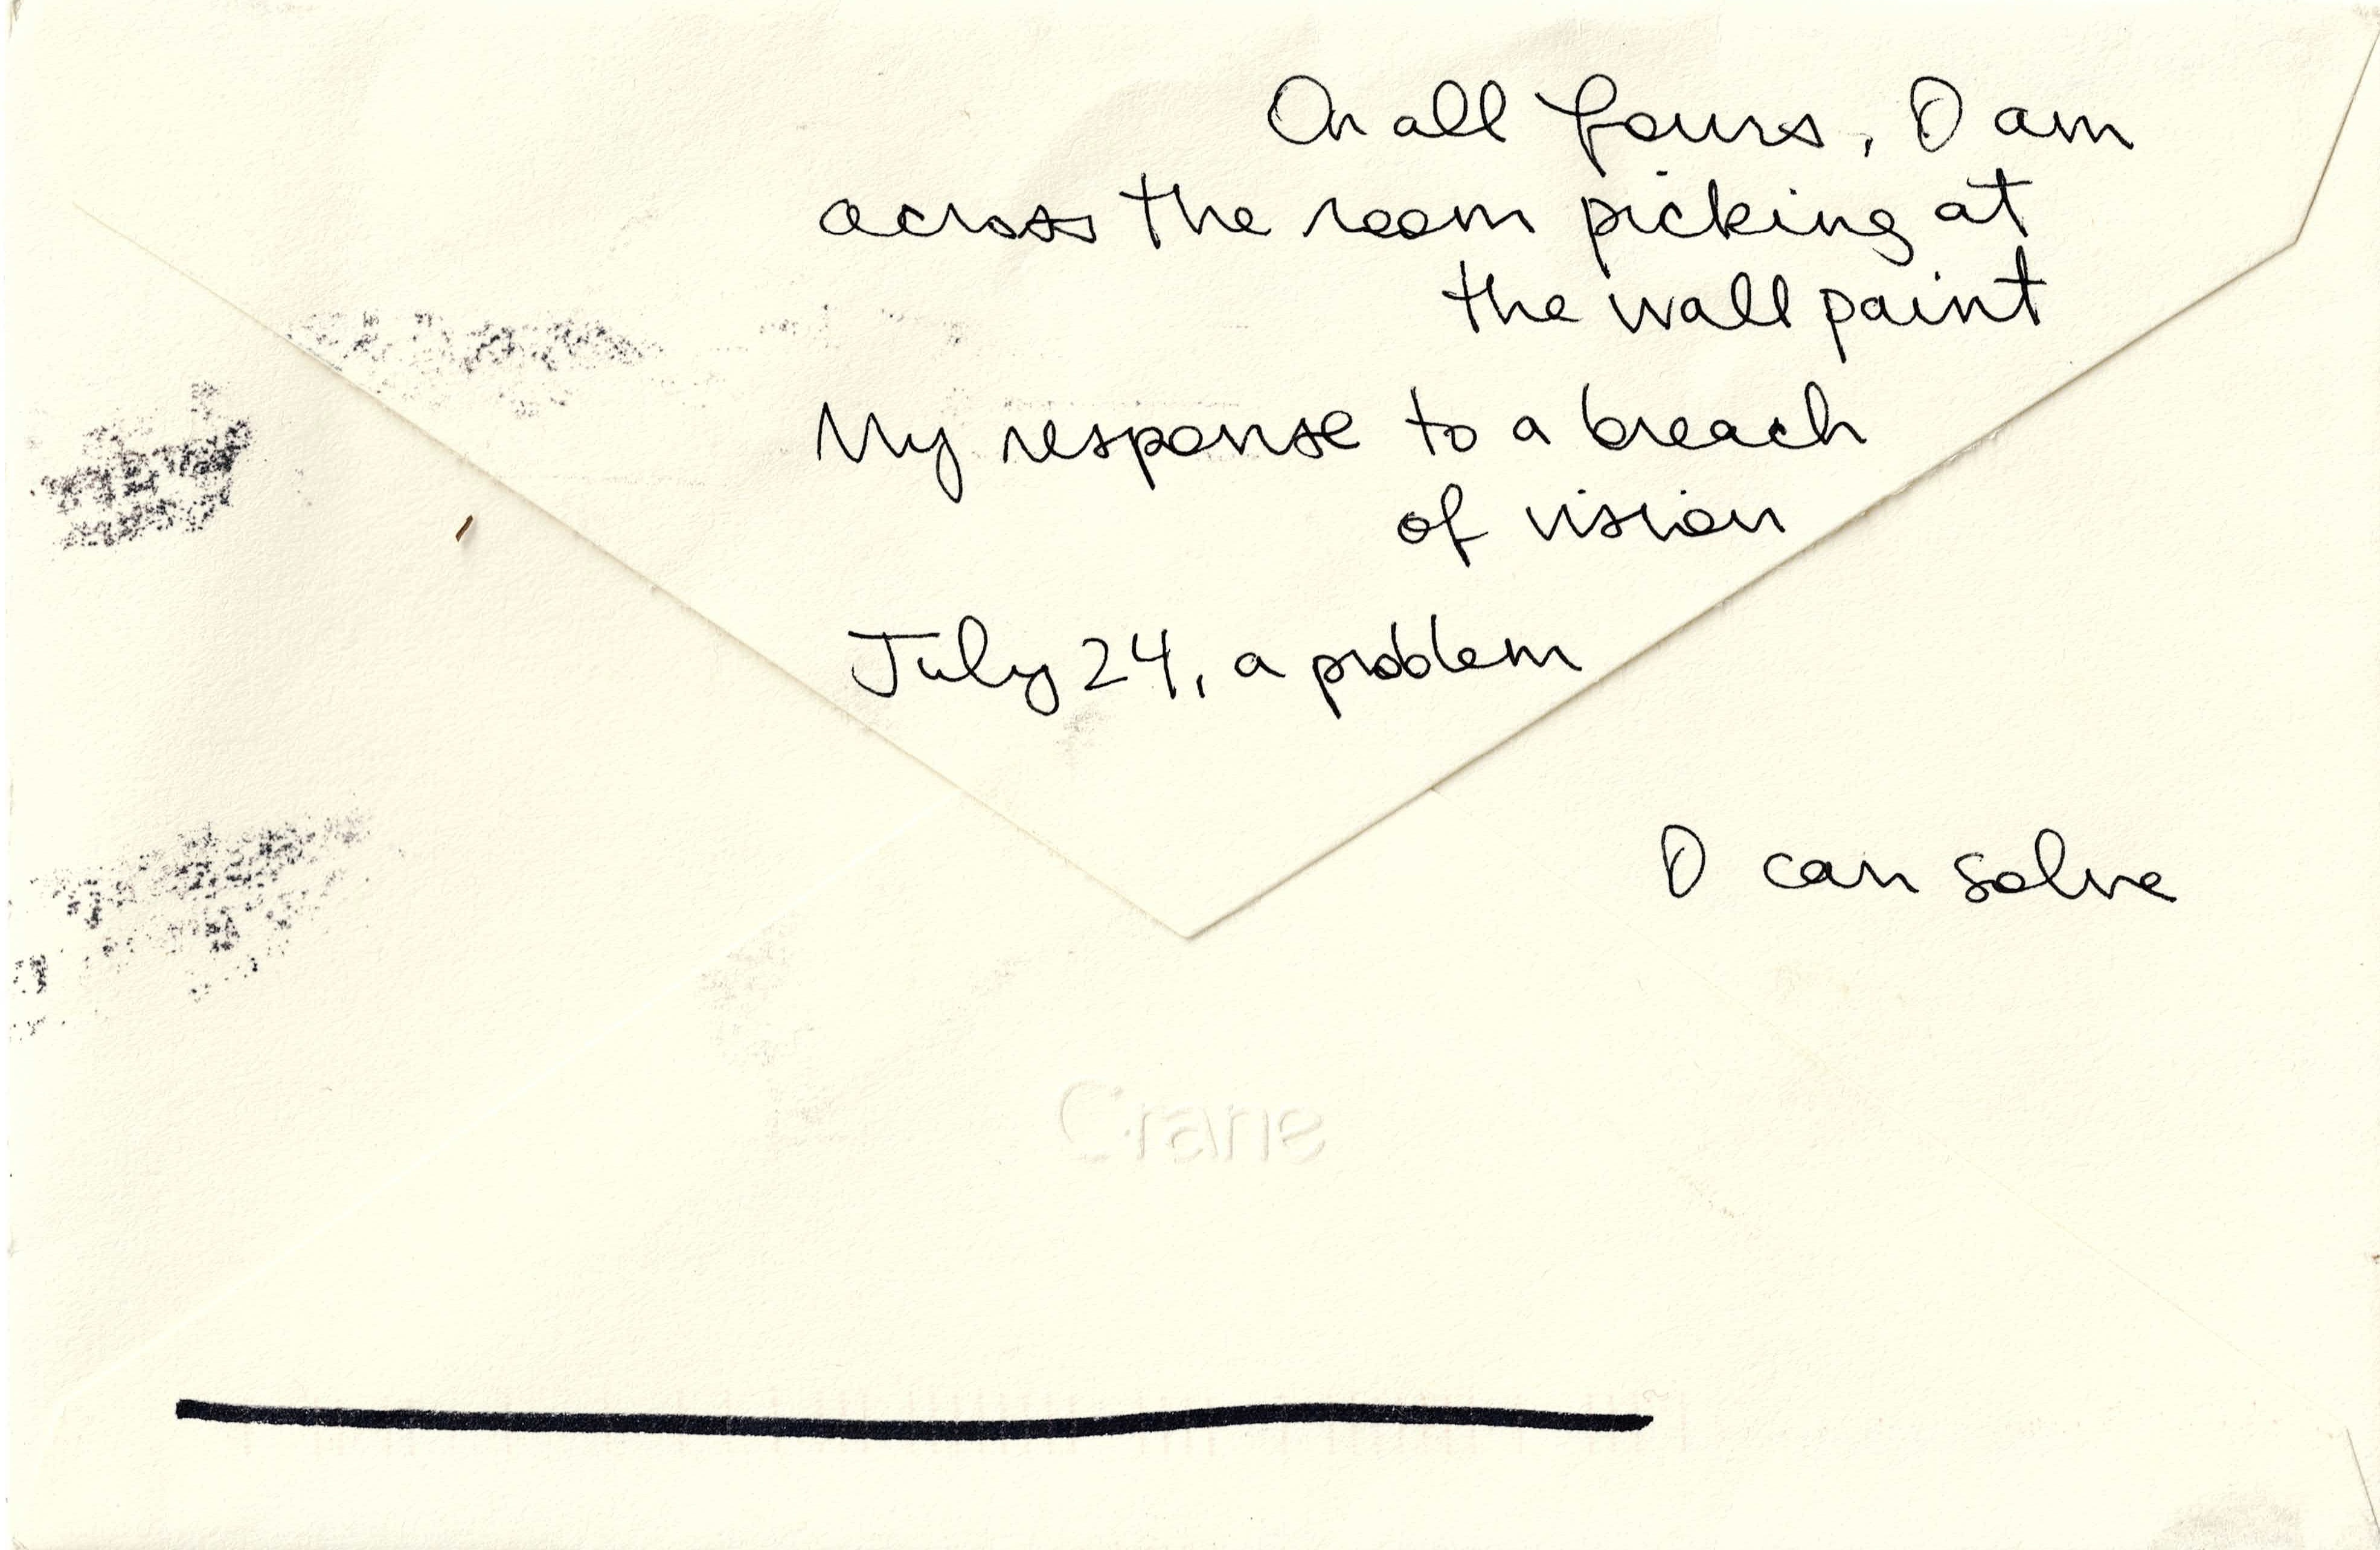 On all fours, I am
across the room picking at
the wall paint
My response to a breach
of vision
July 24, a problem
I can solve
Crane